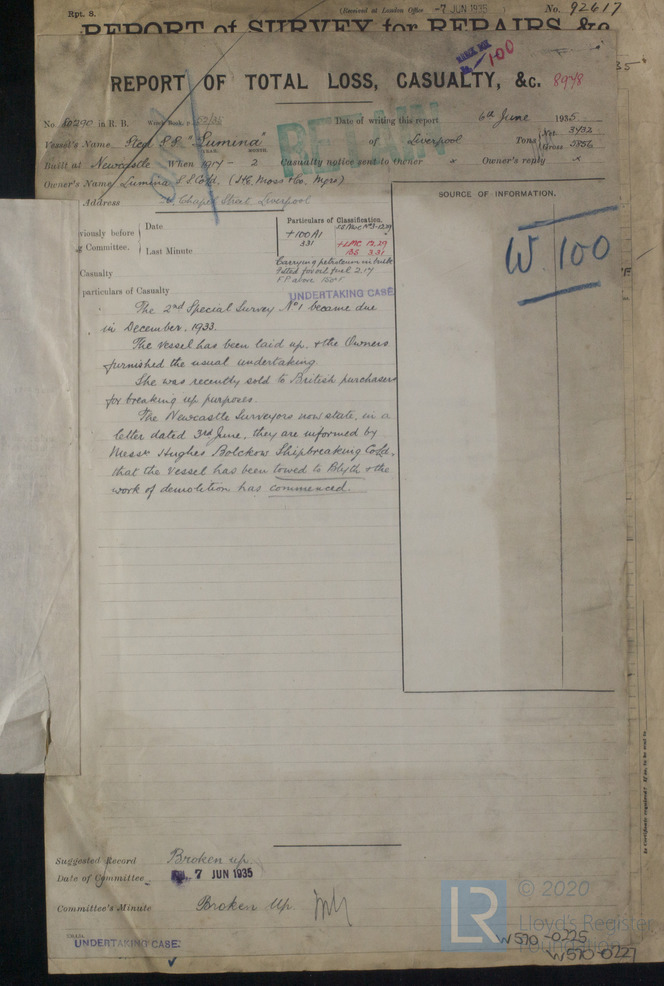 Rpt. 8.
(Received at London Office -7 JUN 1935
No. 92617
REPORT of SURVEY for REPAIRS, &c
100
REPORT OF TOTAL LOSS, CASUALTY, &c. 8978
RETAIN
No. 60290 in R. B.
Date of writing this report 6th June 1935
Vessel's Name Steel S.S. "Lumina" of Liverpool Tons Net 3432 Gross 5856
Built at Newcastle When 1917 - 2 Casualty notice sent to Owner x Owner's reply x
YEAR. MONTH
Owner's Name Lumina S S Co Ld. (H.E. Moss & Co. Mgrs)
Address Chapel Street Liverpool
SOURCE OF INFORMATION.
W. 100
viously before
Committee.
Date
Last Minute
Particulars of Classification.
+100A1
3.31
+LMC 12.29
BS 3.31
Casualty
Carrying petroleum in bulk
Fitted for oil fuel 2.17
F.P. above 150°F
particulars of Casualty
UNDERTAKING CASE
The 2nd Special Survey No 1 became due
in December, 1933.
The vessel has been laid up, & the Owners
furnished the usual undertaking.
She was recently sold to British purchasers
for breaking up purposes.
The Newcastle Surveyors now state, in a
letter dated 3rd June, they are informed by
Messrs Hughes Bolckow Shipbreaking Co Ld,
that the vessel has been towed to Blyth & the
work of demolition has commenced.
Suggested Record Broken up.
Date of Committee 7 JUN 1935
Committee's Minute Broken Up.
UNDERTAKING CASE
LR
© 2020
Lloyd's Register
Foundation
W570-0225
W570-0227